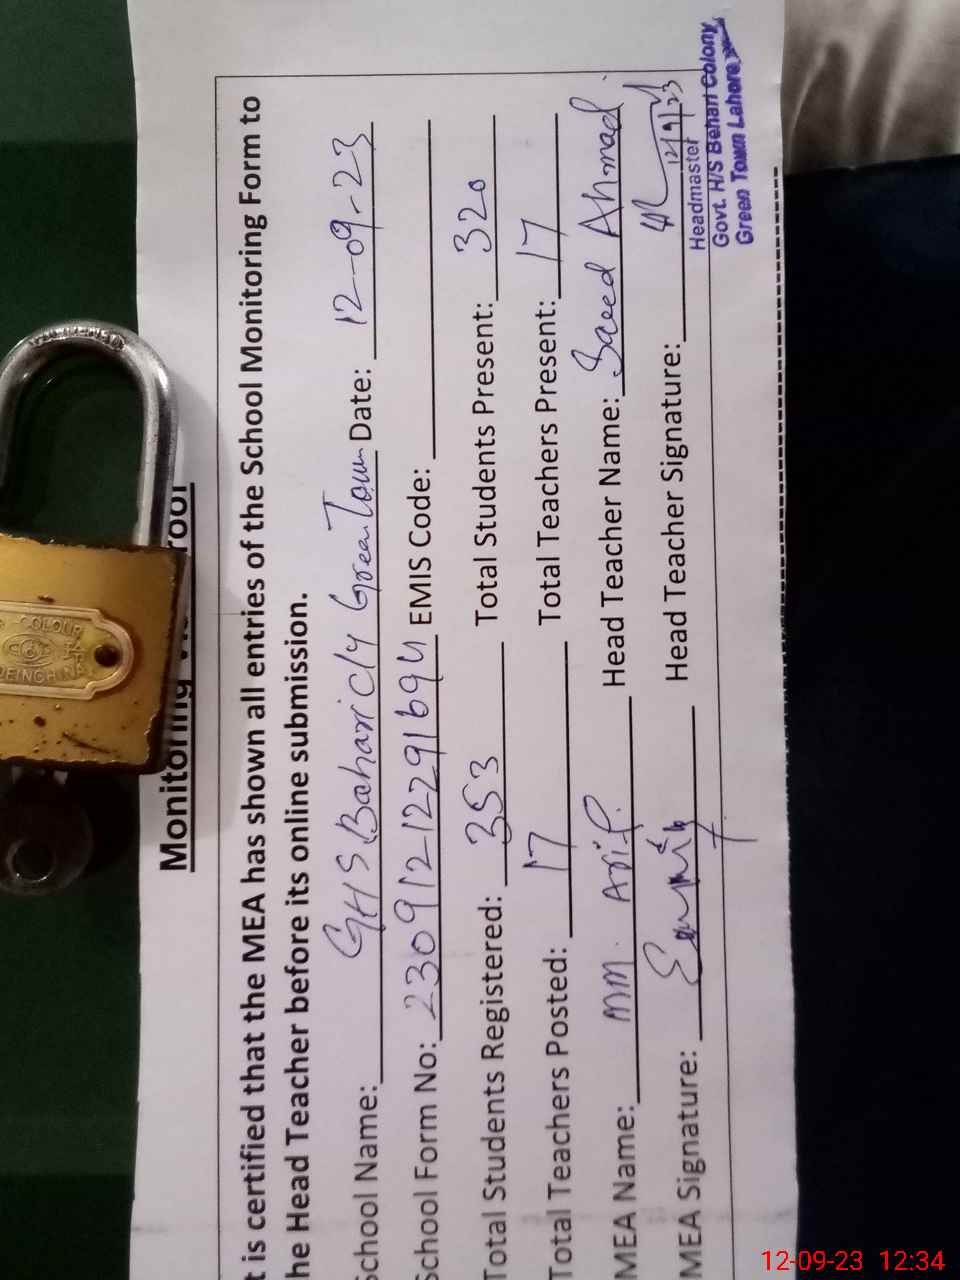 Monitoring
t is certified that the MEA has shown all entries of the School Monitoring Form to
he Head Teacher before its online submission.
School Name: GHS Bahari Cly Green Town Date: 12-09-23
School Form No: 23091212291694 EMIS Code:
Total Students Registered: 353 Total Students Present: 320
Total Teachers Posted: 17 Total Teachers Present: 17
MEA Name: mm. Arif. Head Teacher Name: Saeed Ahmad
MEA Signature: Head Teacher Signature:
12/9/23
Headmaster
Govt. H/S Behari Colony
Green Town Lahore
COLOUR
12-09-23 12:34